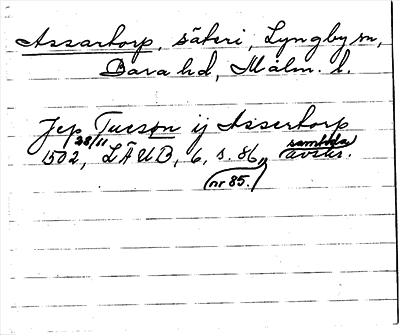 Assartorp, säteri, Lyngby sn,
Bara hd, Malm. l.
Jep Tueson ij Assertorp
28/11
1502, LÄUB, 6, s. 86, samtida
avskr.
nr 85.